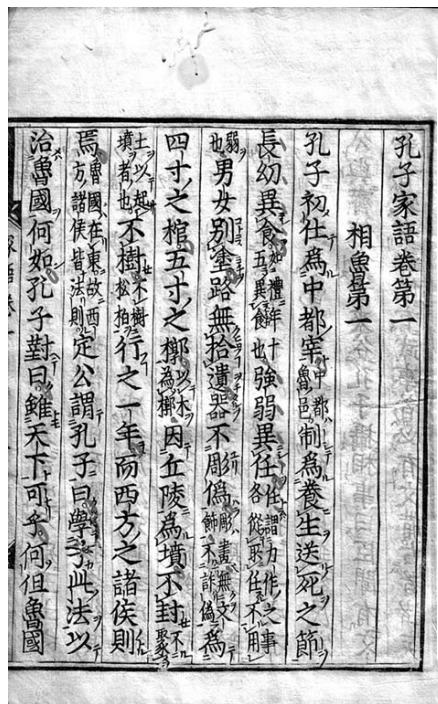 孔子家語卷第一
相魯第一
孔子初仕為中都宰中都魯邑制為養生送死之節
長幼異食如禮年五十異食也強弱異任任謂力作之事各從所任不用
弱也男女別塗路無拾遺器不彫偽彫畫無文飾不詐偽為
四寸之棺五寸之槨以木為槨因丘陵為墳不封不聚
土以起墳者也不樹不樹松柏行之一年而西方之諸侯則
焉魯國在東故西方諸侯皆法則定公謂孔子曰學子此法以
治魯國何如孔子對曰雖天下可乎何但魯國